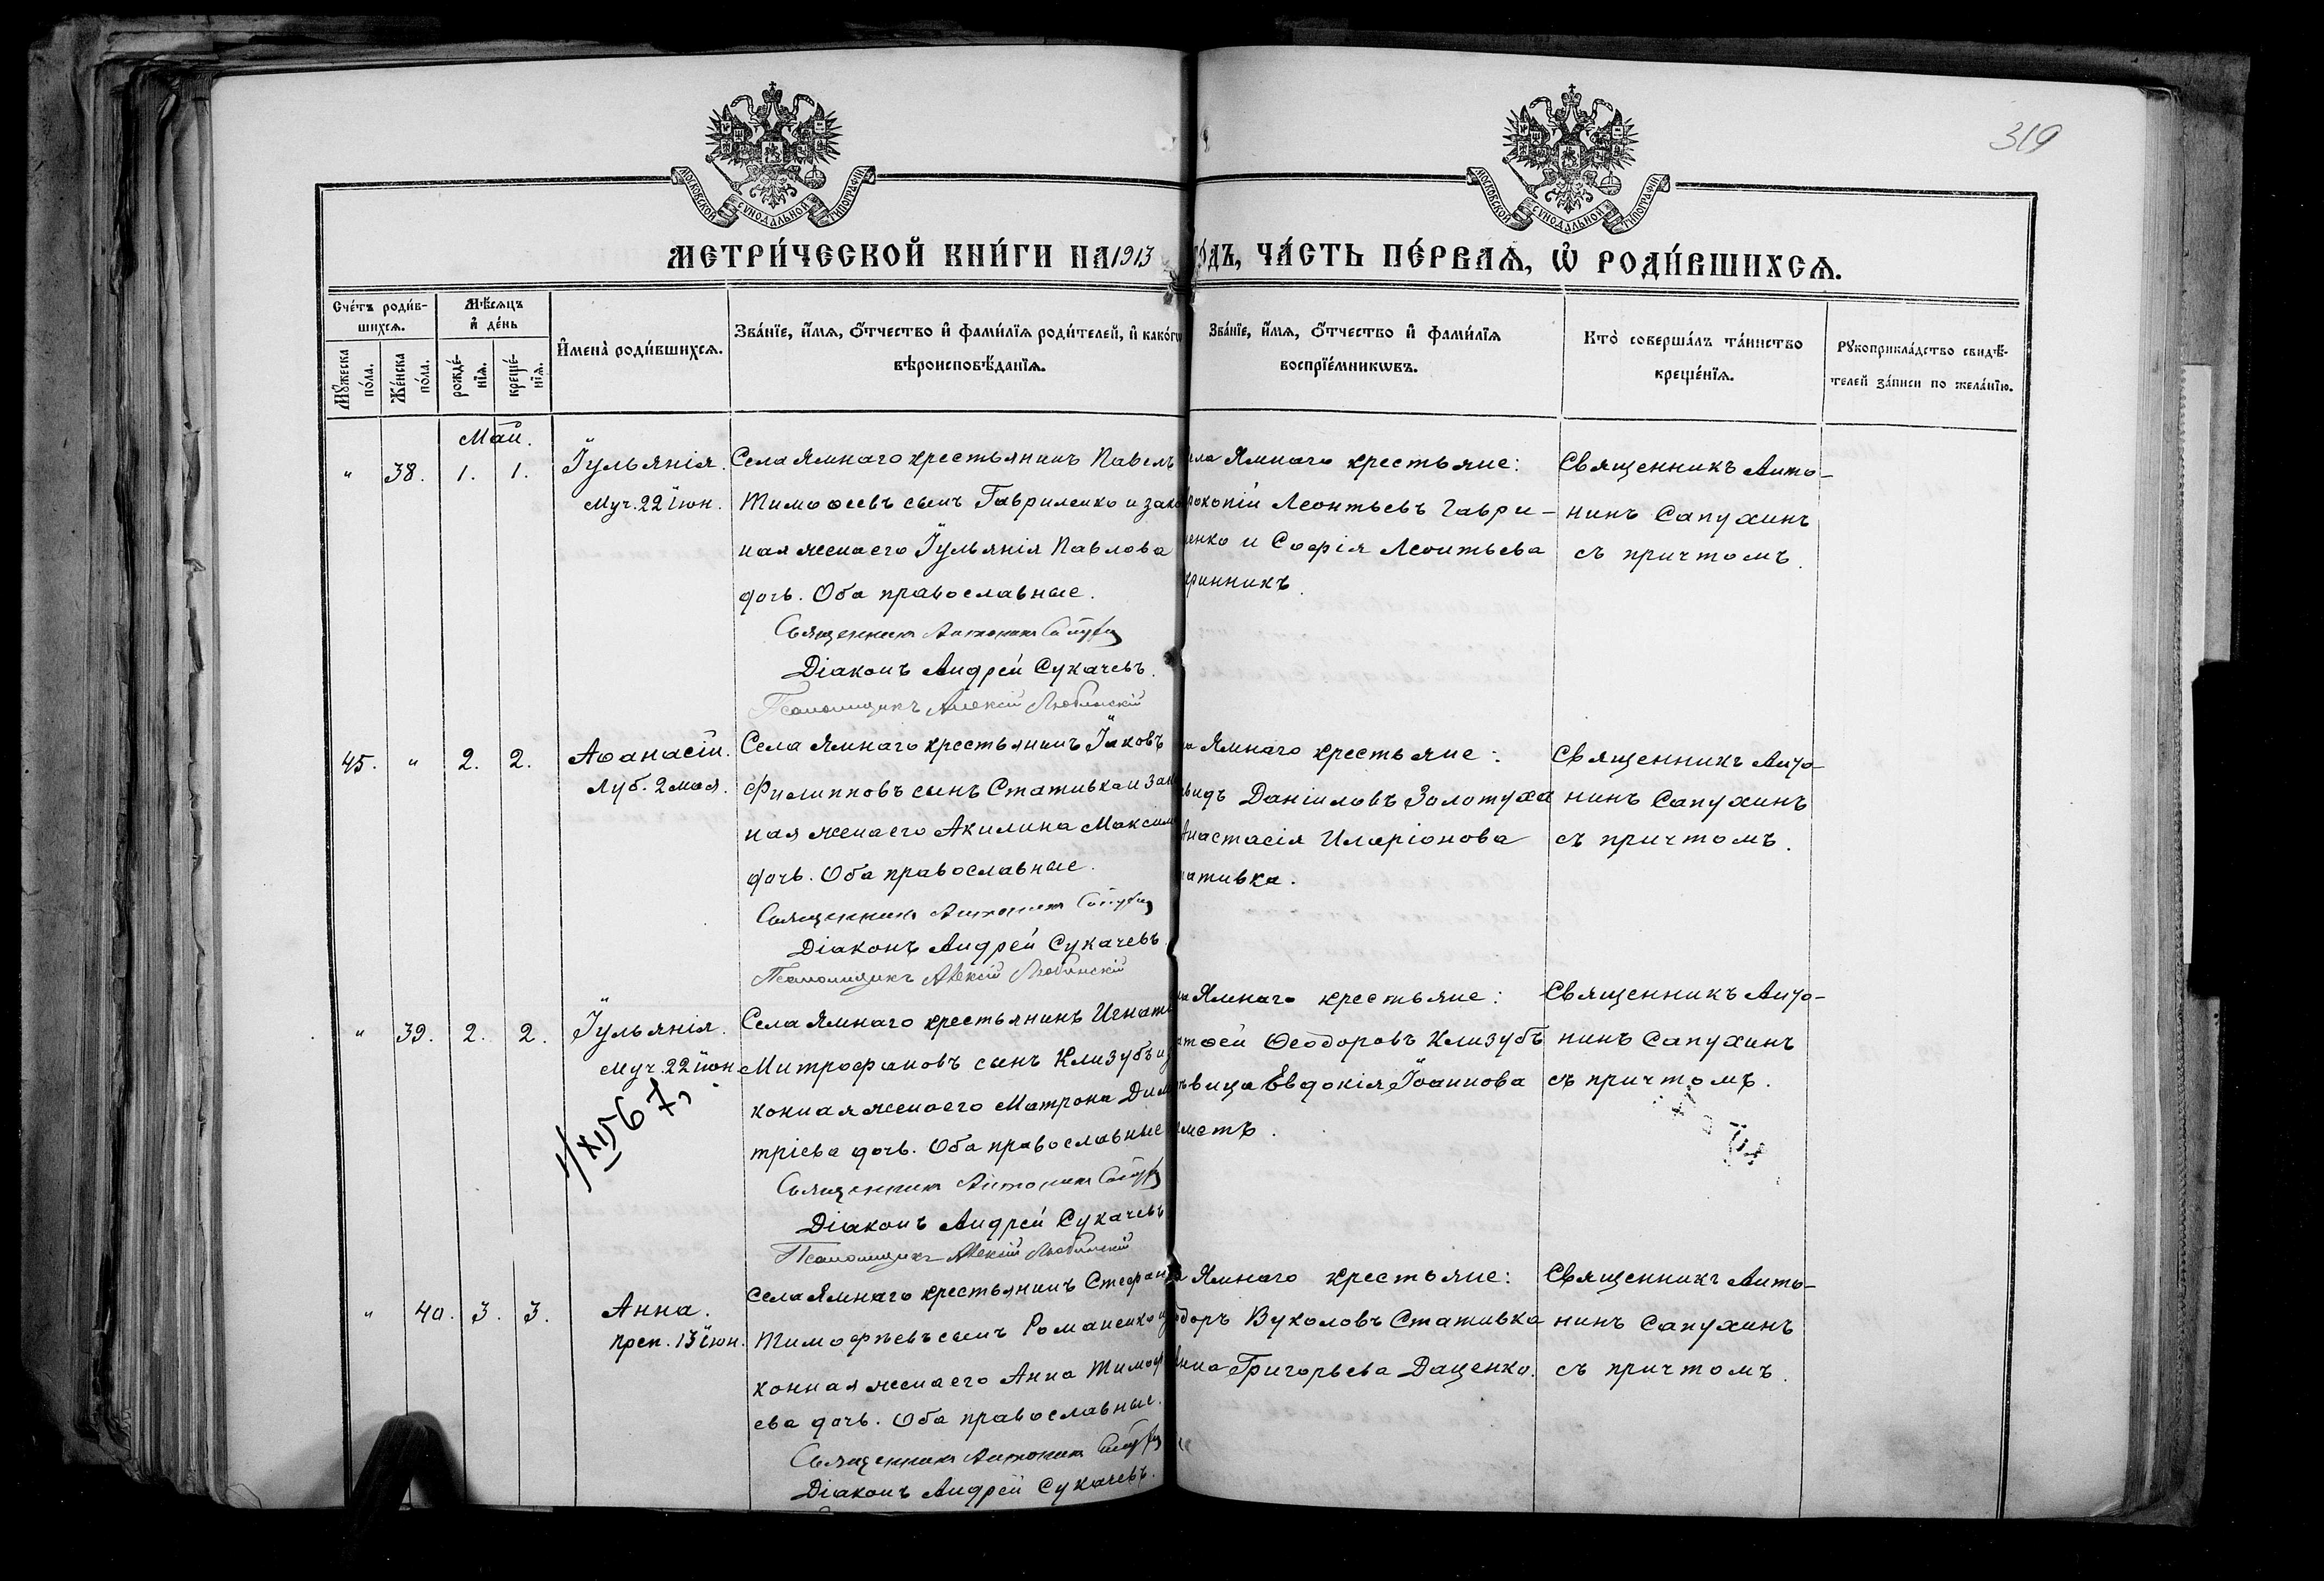 319
МОСКОВСКОЙ СУНОДАЛЬНОЙ ТИПОГРАФІИ
МОСКОВСКОЙ СУНОДАЛЬНОЙ ТИПОГРАФІИ
МЕТРИ́ЧЕСКОЙ КНИ́ГИ НА 1913 ГО́ДЪ, ЧА́СТЬ ПЕ́РВАѦ, Ѡ҆ РОДИ́ВШИХСѦ.
Сче́тъ роди́в-
шихсѧ.
Мꙋ́жеска по́ла.
Же́нска по́ла.
Мѣ́сѧцъ
и҆ де́нь
рожде́-
нїѧ.
креще́-
нїѧ.
И҆мена̀ роди́вшихсѧ.
Зва́нїе, и҆́мѧ, ѻ҆́тчество и҆ фами́лїѧ роди́телей, и҆ како́гѡ
вѣроисповѣ́данїѧ.
Зва́нїе, и҆́мѧ, ѻ҆́тчество и҆ фами́лїѧ
воспрїе́мникѡвъ.
Кто̀ соверша́лъ та́инство
креще́нїѧ.
Рꙋкоприкла́дство свидѣ́-
телей за́писи по жела́нїю.
Май.
" 38. 1. 1.
Іульянія.
муч. 22 іюн.
Села Ямнаго крестьянинъ Павелъ
Тимоѳеевъ сынъ Гавриленко и зако
ная жена его Іульянія Павлова
дочь. Оба православные.
Священникъ Антонинъ Сапухин
Діаконъ Андрей Сукачевъ.
Псаломщикъ Алексій Любинскій
ела Ямнаго крестьяне:
рокопій Леонтьевъ Гаври-
енко и Софія Леонтьева
ринникъ.
Священникъ Анто-
нинъ Сапухинъ
съ причтомъ.
45. " 2. 2.
Аѳанасій.
Луб. 2 мая.
Села Ямнаго крестьянинъ Іаковъ
Филипповъ сынъ Стативка и зак
ная жена его Акилина Максим
дочь. Оба православные.
Священникъ Антонинъ Сапухин
Діаконъ Андрей Сукачевъ.
Псаломщикъ Алексій Любинскій
ла Ямнаго крестьяне:
видъ Даніиловъ Золотуха
Анастасія Иларіонова
ативка.
Священникъ Анто-
нинъ Сапухинъ
съ причтомъ.
" 39. 2. 2.
Іульянія.
муч. 22 іюн.
Села Ямнаго крестьянинъ Игнати
Митрофановъ сынъ Клизубъ и з
конная жена его Матрона Дими
тріева дочь. Оба православные
Священникъ Антонинъ Сапухин
Діаконъ Андрей Сукачевъ
Псаломщикъ Алексій Любинскій
ла Ямнаго крестьяне:
тѳей Ѳеодоровъ Клизубъ
вица Евдокія Іоаннова
Священникъ Анто-
нинъ Сапухинъ
съ причтомъ.
" 40. 3. 3.
Анна.
преп. 13 іюн.
Села Ямнаго крестьянинъ Стефан
Тимоѳѣевъ сынъ Романенко и
конная жена его Анна Тимоѳ
ева дочь. Оба православные.
Священникъ Антонинъ Сапухин
Діаконъ Андрей Сукачевъ.
а Ямнаго крестьяне:
одоръ Вуколовъ Стативка
Анна Григорьева Даценко.
Священникъ Анто-
нинъ Сапухинъ
съ причтомъ.